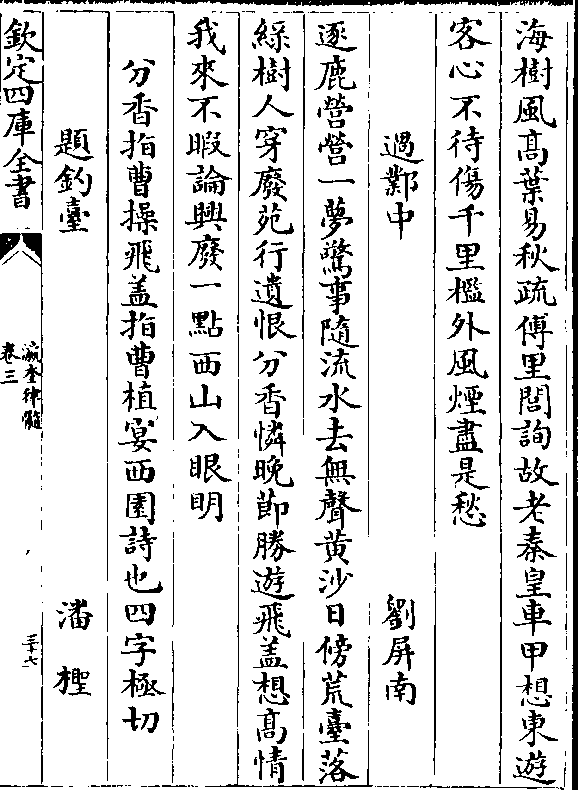 海樹風髙葉易秋疏傅里閭詢故老秦皇車甲想東遊
客心不待傷千里檻外風煙盡是愁
過鄴中 劉屏南
逐鹿營營一夢驚事隨流水去無聲黄沙日傍荒臺落
綠樹人穿廢苑行遺恨分香憐晚節勝遊飛盖想髙情
我來不暇論興廢一點西山入眼明
分香指曹操飛盖指曹植宴西園詩也四字極切
題釣臺 潘檉
欽定四庫全書
瀛奎律髓
卷三
三十七